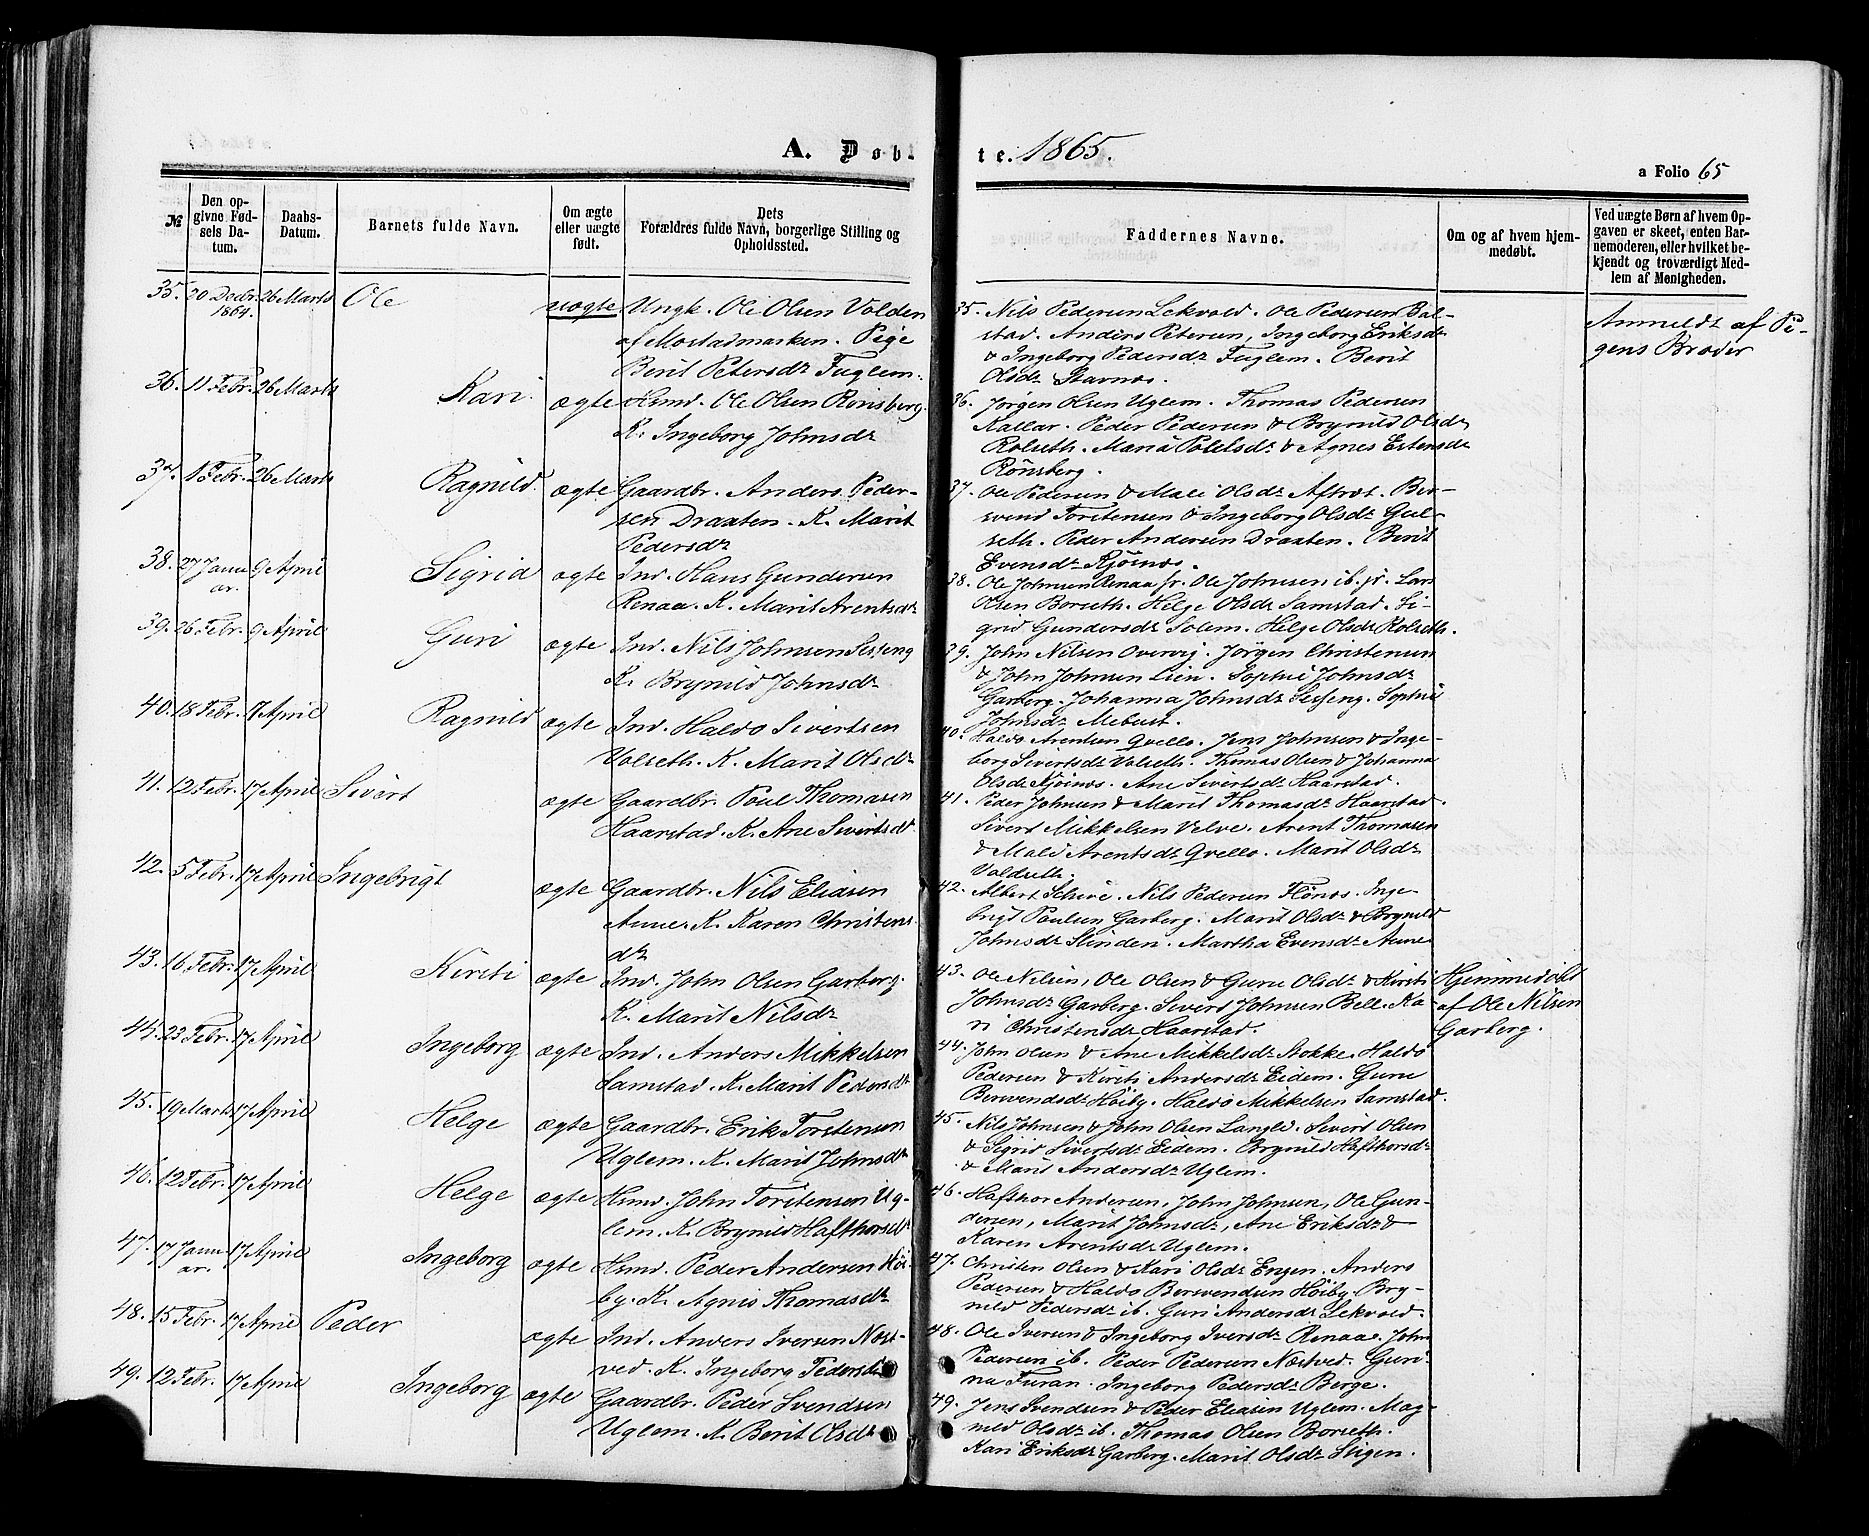 A. Døbte. 1865.
a Folio 65
№
Den opgivne Fødsels Datum.
Daabs-Datum.
Barnets fulde Navn.
Om ægte eller uægte født.
Dets Forældres fulde Navn, borgerlige Stilling og Opholdssted.
Faddernes Navne.
Om og af hvem hjemmedøbt.
Ved uægte Børn af hvem Opgaven er skeet, enten Barnemoderen, eller hvilket bekjendt og troværdigt Medlem af Menigheden.
35. 20 Decbr. 1864. 26 Marts Ole uægte Ungk. Ole Olsen Volden
af Mostadmarken. Pige
Berit Petersdr Fuglem.
35. Nils Pedersen Lekvold. Ole Pedersen Bal-
stad. Anders Petersen, Ingeborg Eriksdr
& Ingeborg Pedersdr Fuglem. Berit
Olsdr Stavnæs.
Anmeldt af Pi-
gens Broder
36. 11 Febr. 26 Marts Kari ægte Husmd. Ole Olsen Rønsberg.
K. Ingeborg Johnsdr
36. Jørgen Olsen Uglem. Thomas Pedersen
Kallar. Peder Pedersen & Brynild Olsdr
Rolseth. Marie Paulsdr & Agnes Estensdr
Rønsberg.
37. 1 Febr. 26 Marts Ragnild. ægte Gaardbr. Anders Peder-
sen Draaten. K. Marit
Pedersdr
37. Ole Pedersen & Mali Olsdr Aftret. Ber-
svend Torstensen & Ingeborg Olsdr Gul-
seth. Peder Andersen Draaten. Berit
Evensdr Kjøsnæs.
38. 27 Janu-
ar. 9 April Sigrid ægte Ind. Hans Gundersen
Renaa. K. Marit Arentsdr
38. Ole Johnsen Renaa sr. Ole Johnsen ib. jr. Lars
Olsen Borseth. Helge Olsdr Samstad. Si-
grid Gundersdr Solem. Helge Olsdr Rolseth.
39. 26 Febr. 9 April Guri ægte Ind. Nils Johnsen Sesseng
K. Brynild Johnsdr
39. John Nilsen Overvig. Jørgen Christensen
& John Johnsen Lien. Sophie Johnsdr
Garberg. Johanna Johnsdr Sesseng. Sophie
Johnsdr Mebust.
40. 18 Febr. 17 April Ragnild ægte Ind. Haldo Sivertsen
Volseth. K. Marit Olsdr
40. Haldo Arentsen Qvello. Jens Johnsen & Inge-
borg Sivertsdr Volseth. Thomas Olsen & Johanna
Olsdr Kjøsnæs. Ane Sivertsdr Haarstad.
41. 12 Febr. 17 April Sivert ægte Gaardbr. Poul Thomasen
Haarstad. K. Ane Sivertsdr.
41. Peder Johnsen & Marit Thomasdr Haarstad.
Sivert Mikkelsen Velve. Arent Thomasen
& Mali Arentsdr Qvello. Marit Olsdr
Valdseth.
42. 5 Febr. 17 April Ingebrigt ægte Gaardbr. Nils Eliasen
Aune. K. Karen Christens-
dr
42. Albert Schive. Nils Pedersen Flønæs. Inge-
brigt Paulsen Garberg. Marit Olsdr & Brynild
Johnsdr Slinden. Martha Evensdr Aune
43. 16 Febr. 17 April Kirsti ægte Ind. John Olsen Garberg.
K. Marit Nilsdr
43. Ole Nilsen, Ole Olsen & Gure Olsdr & Kirsti
Johnsdr Garberg. Sivert Johnsen Bell. Ka-
ri Christensdr Haarstad.
Hjemmedøbt
af Ole Nilsen
Garberg.
44. 23 Febr. 17 April Ingeborg ægte Ind. Anders Mikkelsen
Samstad. K. Marit Pedersdr
44. John Olsen & Ane Mikkelsdr Stokke. Haldo
Pedersen & Kirsti Andersdr Eidem. Gure
Bersvendsdr Høiby. Haldo Mikkelsen Samstad.
45. 19 Marts 17 April Helge ægte Gaardbr. Erik Torstensen
Uglem. K. Marit Johnsdr
45. Nils Johnsen & John Olsen Langli. Sivert Olsen
& Sigrid Sivertsdr Eidem. Brynild Hafthorsdr
& Marit Andersdr Uglem.
46. 12 Febr. 17 April Helge ægte Husmd. John Torstensen Ug-
lem. K. Brynild Hafthorsdr
46. Hafthor Andersen, John Johnsen, Ole Gun-
dersen, Marit Johnsdr, Ane Eriksdr &
Karen Arentsdr Uglem.
47. 17 Janu-
ar. 17 April Ingeborg ægte Husmd. Peder Andersen Høi-
by. K. Agnis Thomasdr
47. Christen Olsen & Kari Olsdr Engen. Anders
Pedersen & Haldo Bersvendsen Høiby. Bry-
nild Pedersdr ib. Guri Andersdr Lekvold.
48. 15 Febr. 17 April Peder ægte Ind. Anders Iversen Næst-
ved. K. Ingeborg Pedersdr
48. Ole Iversen & Ingeborg Iversdr Renaae. John
Pedersen ib. Peder Pedersen Næstved. Guri-
na Furan. Ingeborg Pedersdr Berge.
49. 12 Febr. 17 April Ingeborg ægte Gaardbr. Peder Svendsen
Uglem. K. Berit Olsdr
49. Jens Svendsen & Peder Eliasen Uglem. Mag-
nild Olsdr ib. Thomas Olsen Borseth.
Kari Eriksdr Garberg. Marit Olsdr Stigen.